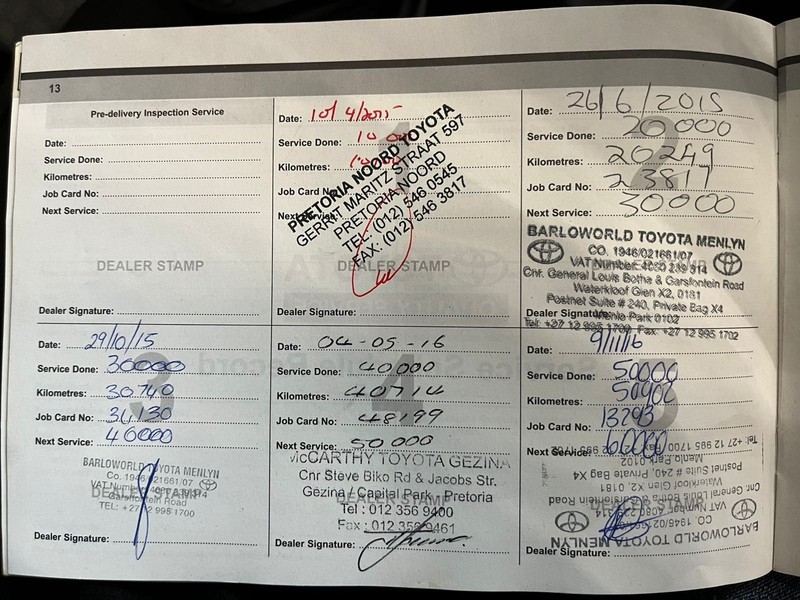 13
Pre-delivery Inspection Service
Date:
Service Done:
Kilometres:
Job Card No:
Next Service:
DEALER STAMP
Dealer Signature:
Date: 10/4/2015
Service Done: 10 000
Kilometres:
Job Card No:
Next Service:
PRETORIA NOORD TOYOTA
GERRIT MARITZ STRAAT 597
PRETORIA NOORD
TEL: (012) 546 0545
FAX: (012) 546 3817
DEALER STAMP
Dealer Signature:
Date: 26/6/2015
Service Done: 20 000
Kilometres: 20249
Job Card No: 23817
Next Service: 30000
BARLOWORLD TOYOTA MENLYN
CO. 1946/021661/07
VAT Number: 4080 239 314
Cnr. General Louis Botha & Garsfontein Road
Waterkloof Glen X2, 0181
Postnet Suite # 240, Private Bag X4
Dealer Signature:
Menlo Park 0102
Tel: +27 12 995 1700 Fax: +27 12 995 1702
Date: 29/10/15
Service Done: 30000
Kilometres: 30740
Job Card No: 31,130
Next Service: 40000
BARLOWORLD TOYOTA MENLYN
CO. 1946/021661/07
VAT Number
Garsfontein Road
TEL: +27 12 995 1700
DEALER STAMP
Dealer Signature:
Date: 04-05-16
Service Done: 40000
Kilometres: 40714
Job Card No: 48199
Next Service: 50 000
McCARTHY TOYOTA GEZINA
Cnr Steve Biko Rd & Jacobs Str.
Gezina / Capital Park - Pretoria
DEALER STAMP
Tel : 012 356 9400
Fax : 012 356 9461
Dealer Signature:
Date: 9/11/16
Service Done: 50000
Kilometres: 50902
Job Card No: 13293
Next Service: 60000
Tel: +27 12 995 1700
Menlo Park 0102
Postnet Suite # 240, Private Bag X4
Waterkloof Glen X2, 0181
Cnr. General Louis Botha & Garsfontein Road
DEALER STAMP
VAT Number
CO. 1946/021661/07
BARLOWORLD TOYOTA MENLYN
Dealer Signature: